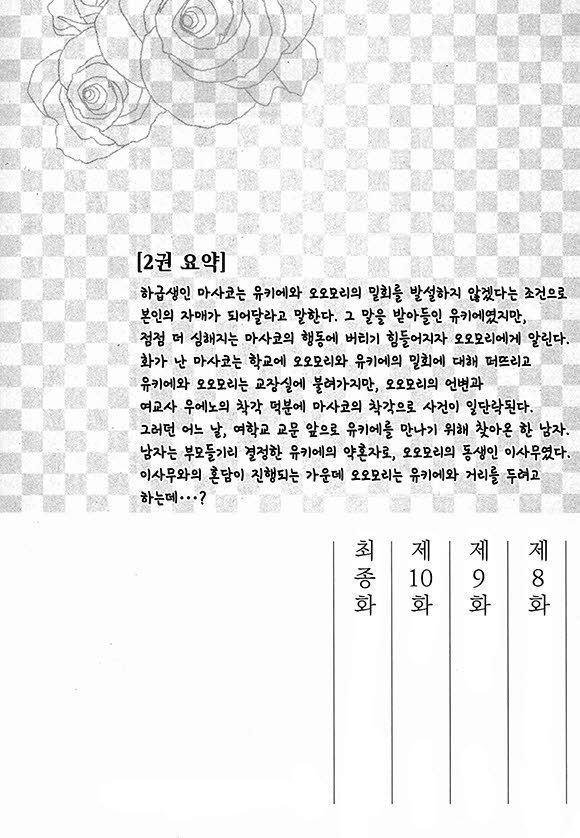 [2권 요약]
하급생인 마사코는 유키에와 오오모리의 밀회를 발설하지 않겠다는 조건으로
본인의 자매가 되어달라고 말한다. 그 말을 받아들인 유키에였지만,
점점 더 심해지는 마사코의 행동에 버티기 힘들어지자 오오모리에게 알린다.
화가 난 마사코는 학교에 오오모리와 유키에의 밀회에 대해 터뜨리고
유키에와 오오모리는 교장실에 불려가지만, 오오모리의 언변과
여교사 우에노의 착각 덕분에 마사코의 착각으로 사건이 일단락된다.
그러던 어느 날, 여학교 교문 앞으로 유키에를 만나기 위해 찾아온 한 남자.
남자는 부모들끼리 결정한 유키에의 약혼자로, 오오모리의 동생인 이사무였다.
이사무와의 혼담이 진행되는 가운데 오오모리는 유키에와 거리를 두려고
하는데···?
제8화
제9화
제10화
최종화